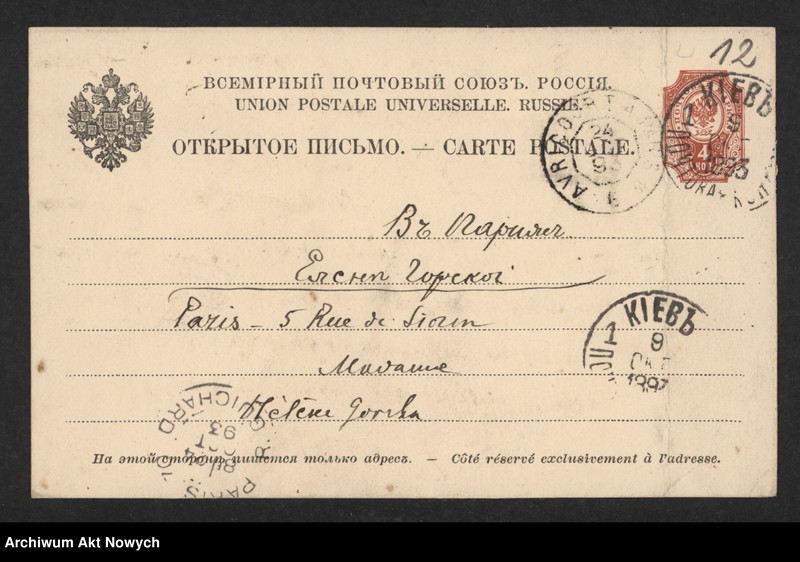 12
ВСЕМІРНЫЙ ПОЧТОВЫЙ СОЮЗЪ. РОССІЯ.
UNION POSTALE UNIVERSELLE. RUSSIE.
ОТКРЫТОЕ ПИСЬМО. — CARTE POSTALE.
КІЕВЪ
1
9
1893
Въ Парижъ
Еленѣ Горской
Paris - 5 Rue de
КІЕВЪ
1
9
ОКТ
1893
Madame
Hélène Gorska
На этой сторонѣ пишется только адресъ. — Côté réservé exclusivement à l'adresse.
PARIS
93
Archiwum Akt Nowych